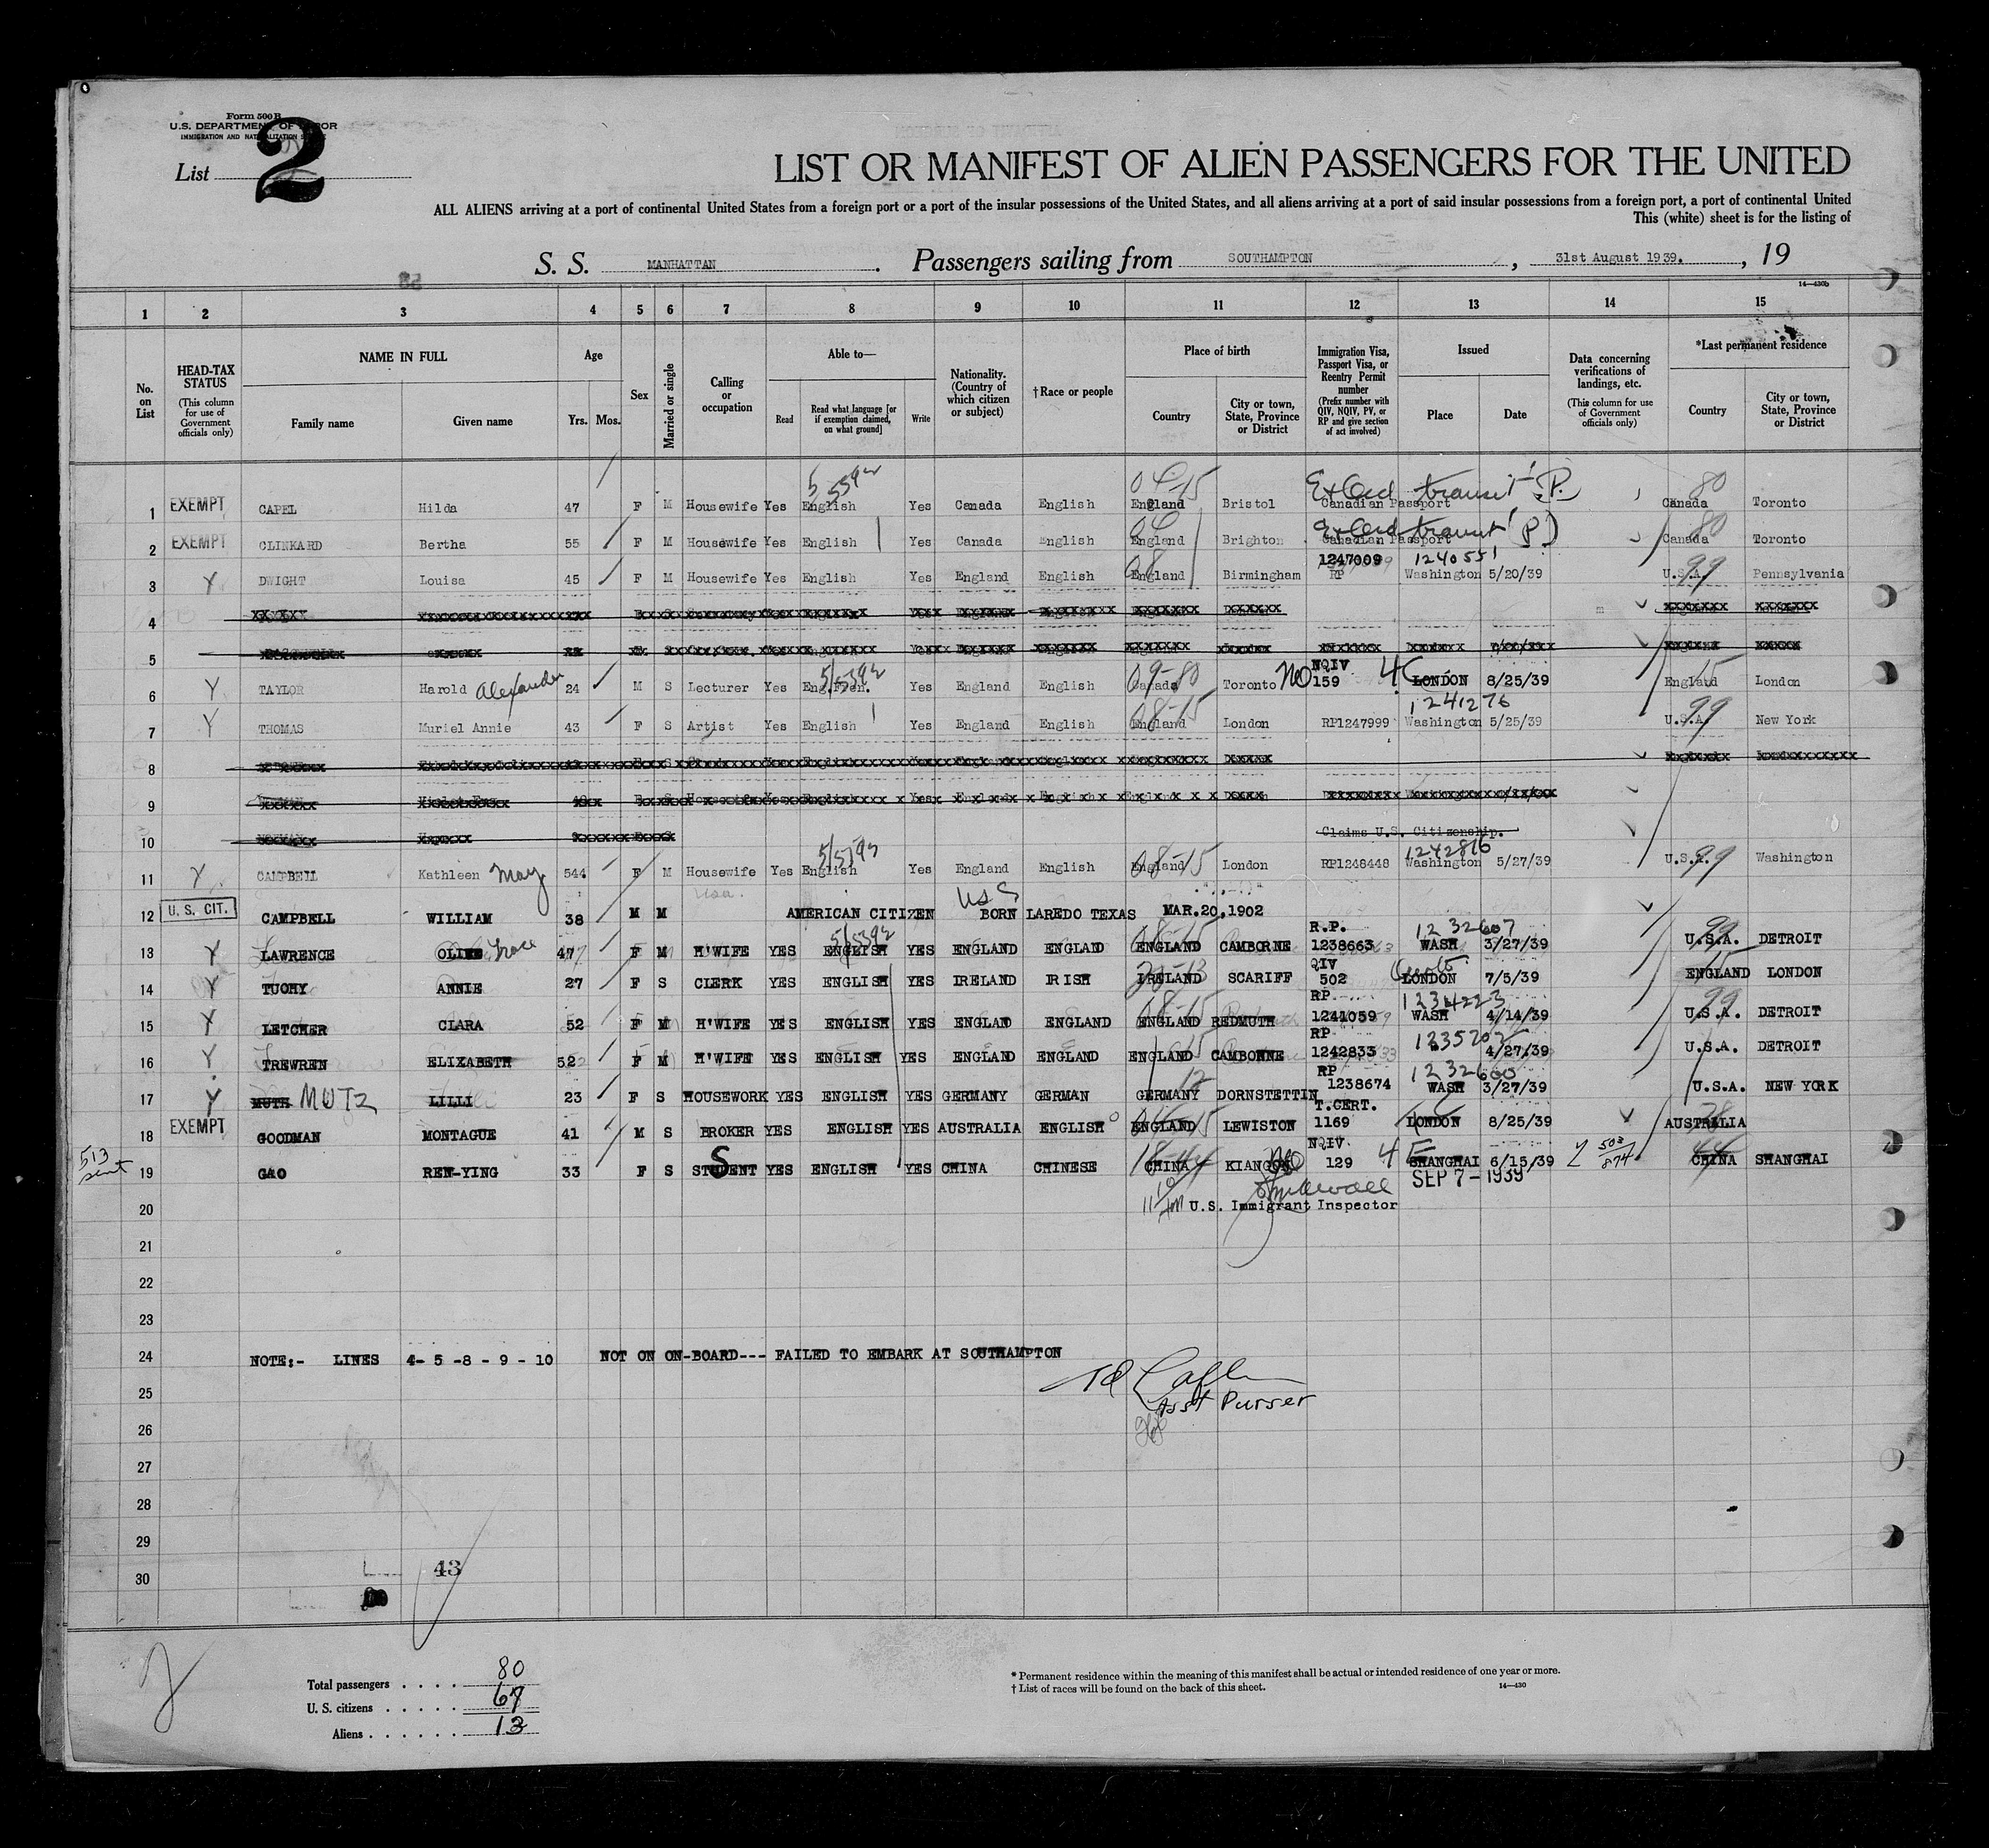 Form 500 B
U.S. DEPARTMENT OF LABOR
IMMIGRATION AND NATURALIZATION SERVICE
List 2
LIST OR MANIFEST OF ALIEN PASSENGERS FOR THE UNITED
ALL ALIENS arriving at a port of continental United States from a foreign port or a port of the insular possessions of the United States, and all aliens arriving at a port of said insular possessions from a foreign port, a port of continental United
This (white) sheet is for the listing of
S. S. MANHATTAN . Passengers sailing from SOUTHAMPTON , 31st August 1939. , 19
14—430b
1 2 3 4 5 6 7 8 9 10 11 12 13 14 15
No. on List
HEAD-TAX STATUS (This column for use of Government officials only)
NAME IN FULL Family name Given name
Age Yrs. Mos.
Sex
Married or single
Calling or occupation
Able to— Read Read what language [or if exemption claimed, on what ground] Write
Nationality. (Country of which citizen or subject)
† Race or people
Place of birth Country City or town, State, Province or District
Immigration Visa, Passport Visa, or Reentry Permit number (Prefix number with QIV, NQIV, PV, or RP and give section of act involved)
Issued Place Date
Data concerning verifications of landings, etc. (This column for use of Government officials only)
*Last permanent residence Country City or town, State, Province or District
5 5392 04-15 Ex Ord transit P. 80
1 EXEMPT CAPEL Hilda 47 F M Housewife Yes English Yes Canada English England Bristol Canadian Passport Canada Toronto
Ex Ord transit (P) 80
2 EXEMPT CLINKARD Bertha 55 F M Housewife Yes English Yes Canada English England Brighton Canadian Passport Canada Toronto
1247009 1240551
3 Y DWIGHT Louisa 45 F M Housewife Yes English Yes England English England Birmingham RP Washington 5/20/39 U.S.A. 99 Pennsylvania
4
5
5/5392 09-80 NQIV 15
6 Y TAYLOR Harold Alexander 24 M S Lecturer Yes Eng.Fren. Yes England English Canada Toronto No 159 4C LONDON 8/25/39 England London
08-15 1241276
7 Y THOMAS Muriel Annie 43 F S Artist Yes English Yes England English England London RP1247999 Washington 5/25/39 U.S.A. 99 New York
8
9
10 Claims U.S. Citizenship.
08-15 1242816
11 Y CAMPBELL Kathleen May 544 F M Housewife Yes English Yes England English England London RP1248448 Washington 5/27/39 U.S.A. 99 Washington
usa. US
12 U. S. CIT. CAMPBELL WILLIAM 38 M M AMERICAN CITIZEN BORN LAREDO TEXAS MAR.20,1902
5/5392 R.P. 1232607 99
13 Y LAWRENCE Grace 47 F M H'WIFE YES ENGLISH YES ENGLAND ENGLAND ENGLAND CAMBORNE 1238663 WASH 3/27/39 U.S.A. DETROIT
QIV
14 Y TUOHY ANNIE 27 F S CLERK YES ENGLISH YES IRELAND IRISH IRELAND SCARIFF 502 LONDON 7/5/39 ENGLAND LONDON
RP 1234223 99
15 Y LETCHER CLARA 52 F M H'WIFE YES ENGLISH YES ENGLAND ENGLAND ENGLAND REDMUTH 1241059 WASH 4/14/39 U.S.A. DETROIT
RP
16 Y TREWREN ELIZABETH 52 F M H'WIFE YES ENGLISH YES ENGLAND ENGLAND ENGLAND CAMBONNE 1242833 " 4/27/39 U.S.A. DETROIT
RP 1232600
17 Y MUTH MUTZ LILLI 23 F S HOUSEWORK YES ENGLISH YES GERMANY GERMAN GERMANY DORNSTETTIN 1238674 WASH 3/27/39 U.S.A. NEW YORK
T.CERT.
18 EXEMPT GOODMAN MONTAGUE 41 M S BROKER YES ENGLISH YES AUSTRALIA ENGLISH ENGLAND LEWISTON 1169 LONDON 8/25/39 AUSTRALIA
513 NQIV. 503
19 GAO REN-YING 33 F S STUDENT YES ENGLISH YES CHINA CHINESE CHINA No 129 4 E SHANGHAI 6/15/39 874 CHINA 44 SHANGHAI
SEP 7 - 1939
20 U.S. Immigrant Inspector
21
22
23
24 NOTE:- LINES 4- 5 -8 - 9 - 10 NOT ON ON-BOARD--- FAILED TO EMBARK AT SOUTHAMPTON
25 Asst Purser
26
27
28
29
43
30
Total passengers . . . . 80
U. S. citizens . . . . . 67
Aliens . . . . . . 13
* Permanent residence within the meaning of this manifest shall be actual or intended residence of one year or more.
† List of races will be found on the back of this sheet.
14—430